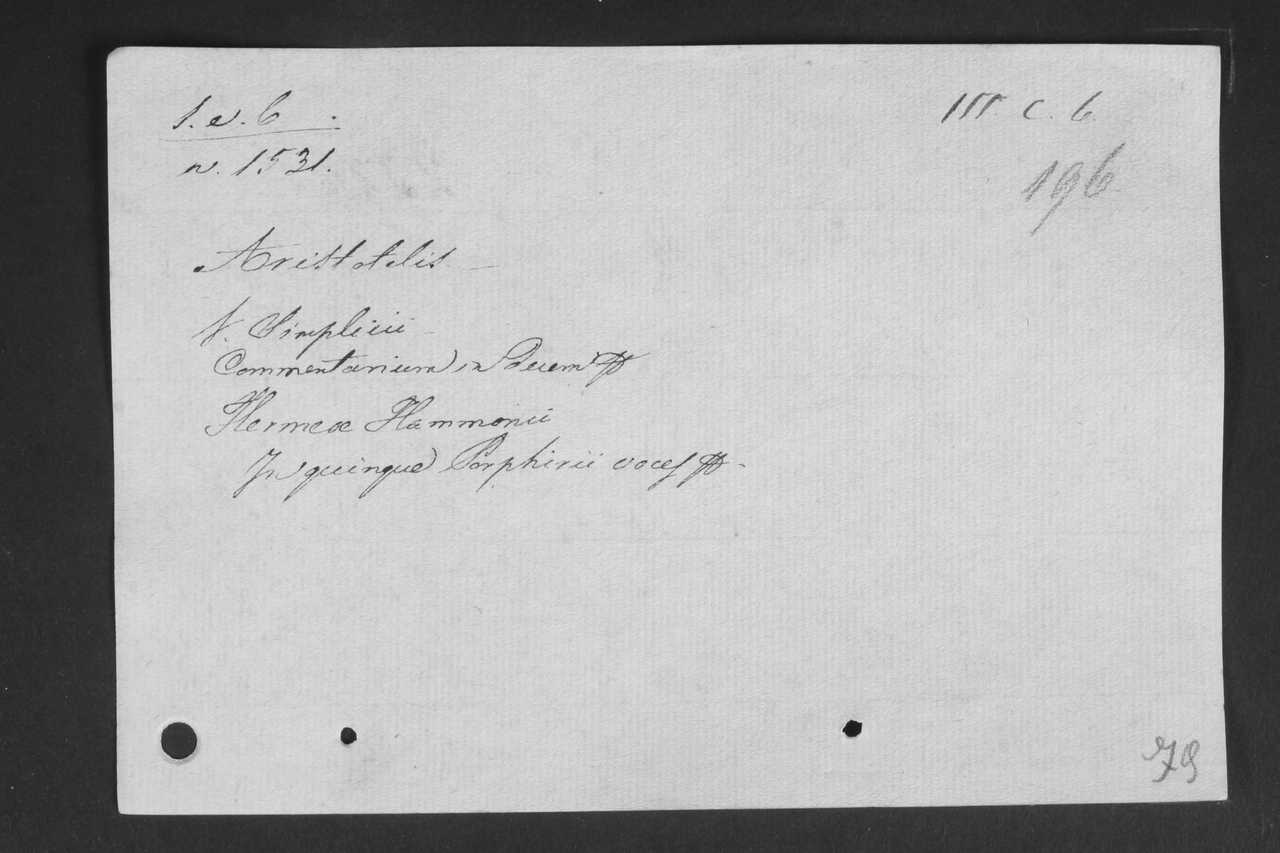 1. e. 6.
III. C. 6.
n. 1531.
196
Aristotelis.
V. Simplicii
Commentarium in decem
Hermeae Hammonii
In quinque Porphirii voces
79